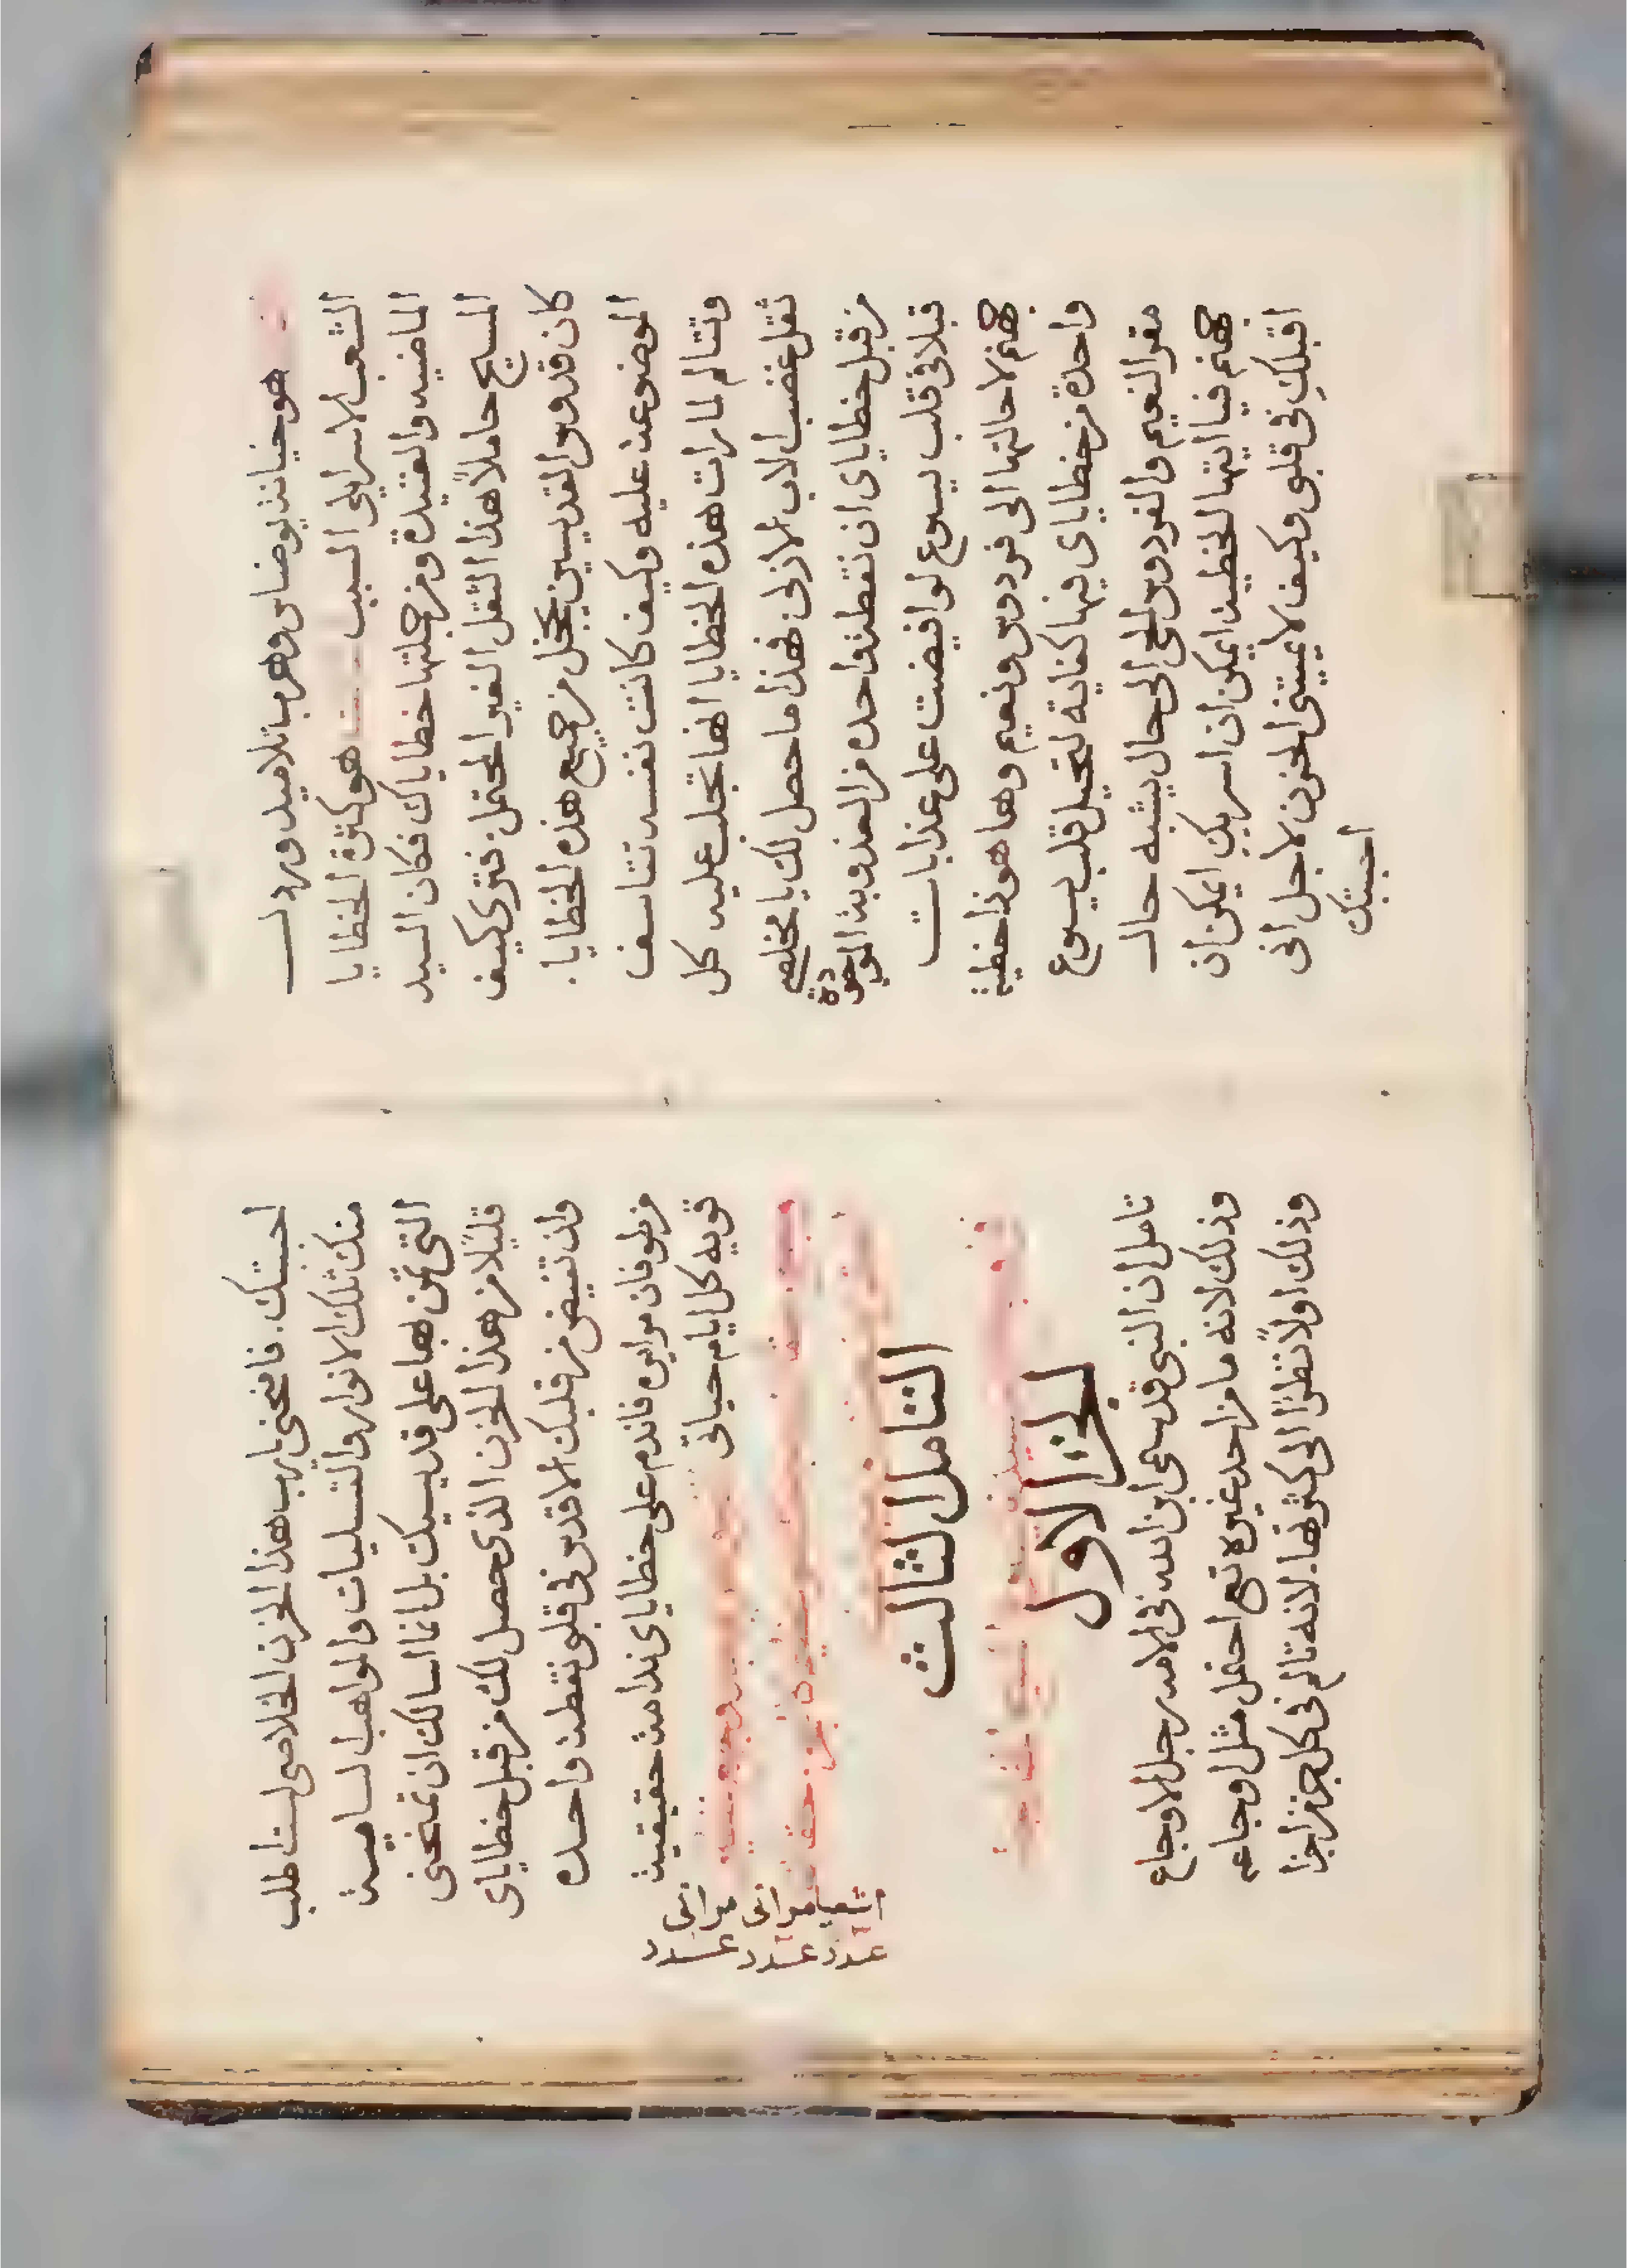 هو خيانة يوضاس وهرب تلاميده ورذل
الشعب الاسرايلي السبب هو كثرة الخطايا
الماضيه والعتيدة ومن جملتها خطاياك فكان السيد
المسيح حاملاً هذا الثقل الغير المحتمل فترى كيف
كان قدوس القديسين يخجل من جميع هذه الخطايا.
الموضوعة عليه وكيف كانت نفسه تتاسف
وتتالم لما رات هذه الخطايا انها تجلب عليه كل
ثقل غضب الاب الازلى فهذا ما حصل لك يا مخلصي
من قبل خطاياى ان نقطة واحده من العذوبة الموجودة
قبلا فى قلب يسوع لو افيضت على عذابات
جهنم لاحالتها الى فردوس ونعيم وها هوذا خطية
واحدة من خطاياى فيها كفاية لتحيل قلب يسوع
مقر النعيم والفردوس الحى الى حال يشبه حال
جهنم فيا ايتها الخطية ايمكن ان اسر بكِ ايمكن ان
اقبلكِ فى قلبى وكيف لا يميتنى الحزن لاجل انى
احببتك
احببتك. فامنحنى يارب هذا الحزن الخلاصى لست اطلب
منك تلك الانوار والتسليات والمواهب السامية
التى تمن بها على قديسيك بل انما اسالك ان تمنحنى
قليلًا من هذا الحزن الذى حصل لك من قبل خطاياى
وان تفيض من قلبك الاقدس فى قلبى نقطة واحده
من طوفان مرايره فاندم على خطاياى ندامة حقيقية
قويه كل ايام حياتى
التامل الثالث
الجز الاول
تامل ان النبى قد سمى ابن الله فى الامه رجل الاوجاع
وذلك لانه ما من احد غيره قط احتمل مثل اوجاعه
وذلك اولاً نظرًا الى كثرتها. لانه تالم فى كل جز من اجزا